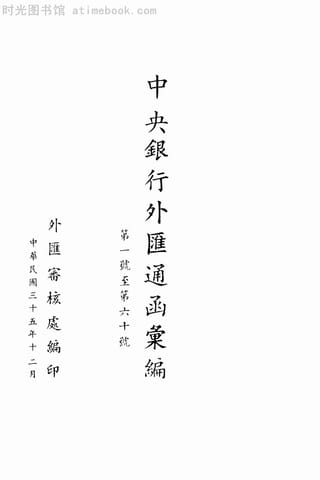 时光图书馆 atimebook.com
中央銀行外匯通函彙編
第一號至第六十號
外匯審核處編印
中華民國三十五年十二月